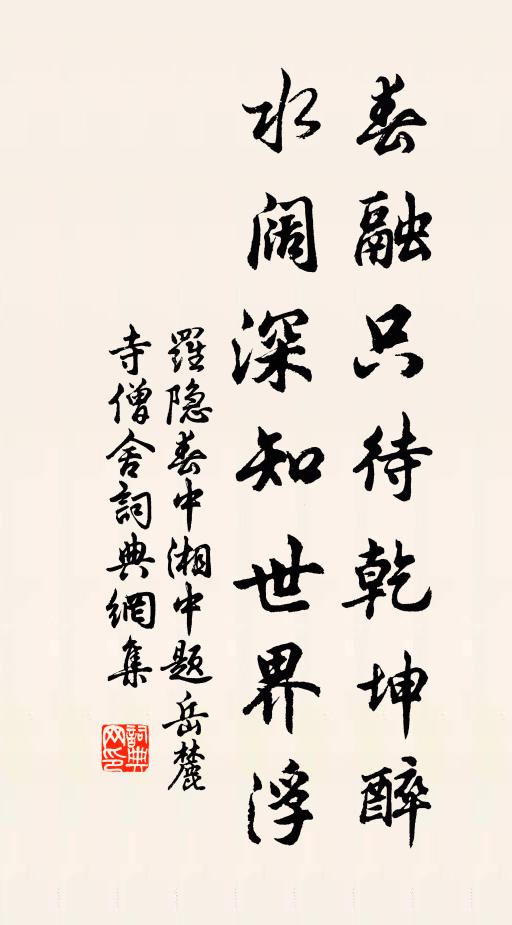 春融只待乾坤醉
水阔深知世界浮
羅隐春中湘中题岳麓
寺僧舍詞典網集
詞典
网印